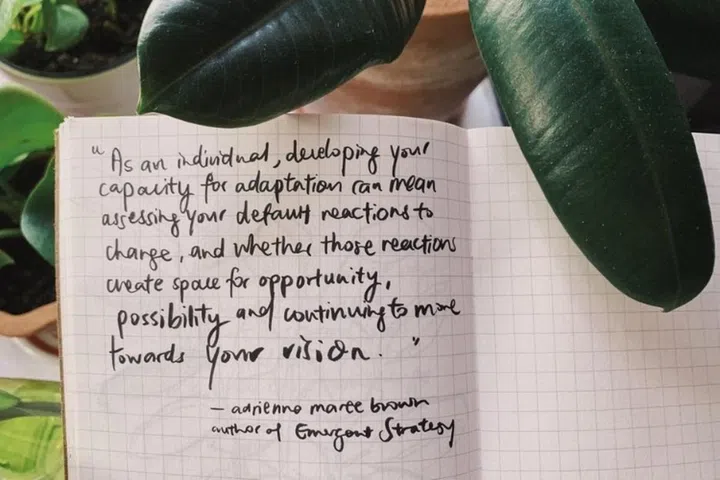 "As an individual, developing your
capacity for adaptation can mean
assessing your default reactions to
change, and whether those reactions
create space for opportunity,
possibility and continuing to move
towards your vision."
— adrienne maree brown
author of Emergent Strategy